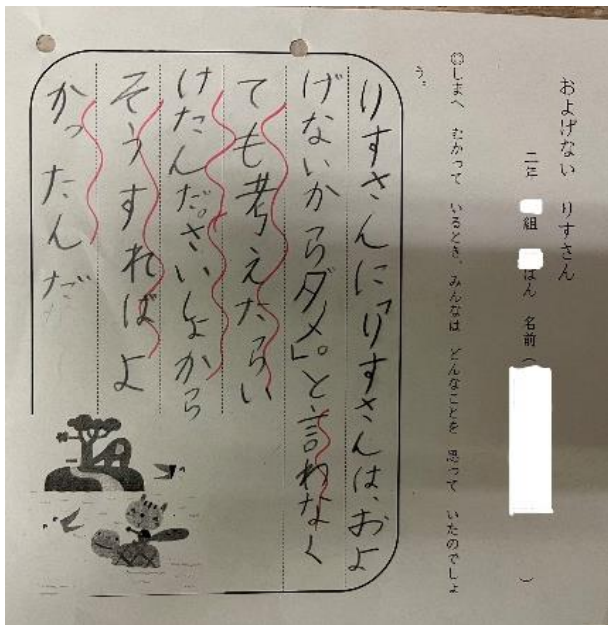 およげない りすさん
二年 組 ばん 名前( )
◎しまへ むかって いるとき、みんなは どんなことを 思って いたのでしょ
う。
りすさんに「りすさんは、およ
げないからダメ」。と言わなく
ても考えたらい
けたんだ。さいしょから
そうすればよ
かったんだ